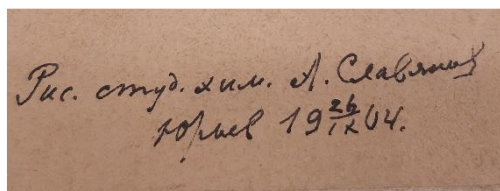 Рис. студ. хим. А. Славянин
Юрьев 19 26/IX 04.